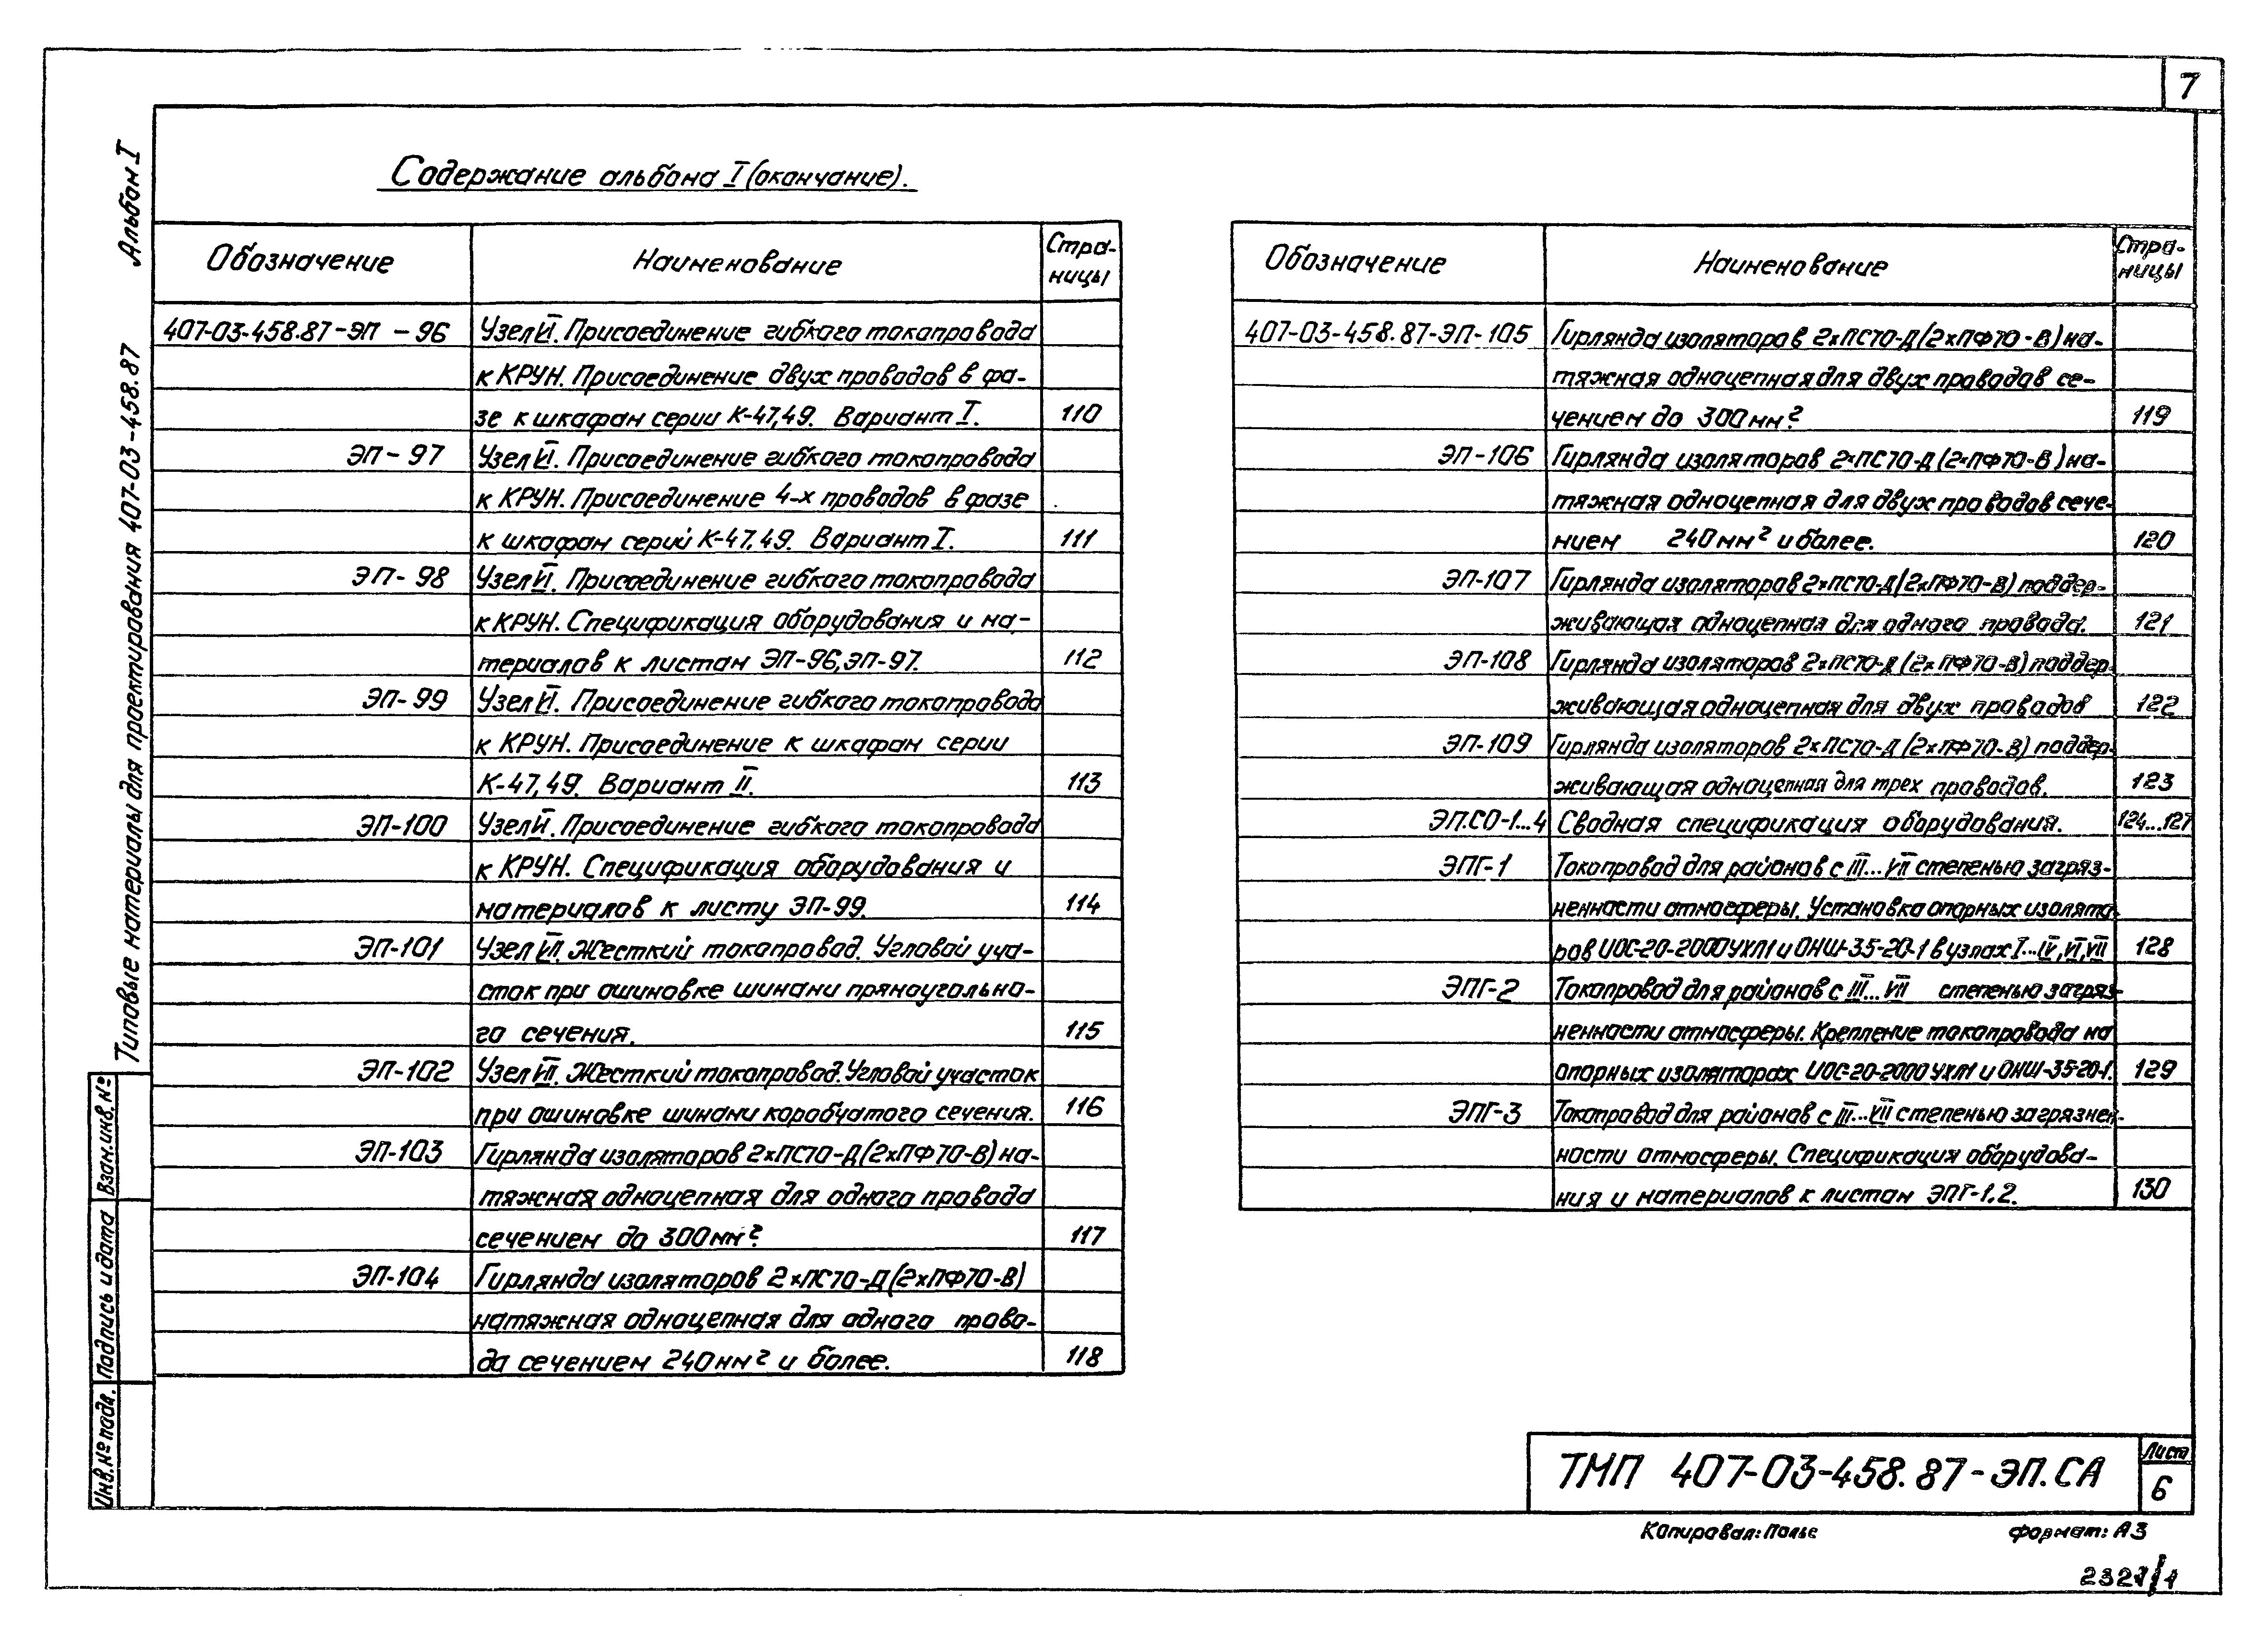 7
Альбом I
Типовые материалы для проектирования 407-03-458.87
Содержание альбома I (окончание).
Обозначение Наименование Стра-
ницы
407-03-458.87-ЭП - 96 Узел VI. Присоединение гибкого токопровода
к КРУН. Присоединение двух проводов в фа-
зе к шкафам серии К-47,49. Вариант I. 110
ЭП - 97 Узел VI. Присоединение гибкого токопровода
к КРУН. Присоединение 4-х проводов в фазе
к шкафам серий К-47,49. Вариант I. 111
ЭП - 98 Узел VI. Присоединение гибкого токопровода
к КРУН. Спецификация оборудования и ма-
териалов к листам ЭП-96, ЭП-97. 112
ЭП - 99 Узел VI. Присоединение гибкого токопровода
к КРУН. Присоединение к шкафам серии
К-47,49. Вариант II. 113
ЭП-100 Узел VI. Присоединение гибкого токопровода
к КРУН. Спецификация оборудования и
материалов к листу ЭП-99. 114
ЭП-101 Узел VII. Жесткий токопровод. Угловой уча-
сток при ошиновке шинами прямоугольно-
го сечения. 115
ЭП-102 Узел VII. Жесткий токопровод. Угловой участок
при ошиновке шинами коробчатого сечения. 116
ЭП-103 Гирлянда изоляторов 2×ПС70-Д (2×ПФ70-В) на-
тяжная одноцепная для одного провода
сечением до 300 мм². 117
ЭП-104 Гирлянда изоляторов 2×ПС70-Д (2×ПФ70-В)
натяжная одноцепная для одного прово-
да сечением 240 мм² и более. 118
Обозначение Наименование Стра-
ницы
407-03-458.87-ЭП-105 Гирлянда изоляторов 2×ПС70-Д (2×ПФ70-В) на-
тяжная одноцепная для двух проводов се-
чением до 300 мм². 119
ЭП-106 Гирлянда изоляторов 2×ПС70-Д (2×ПФ70-В) на-
тяжная одноцепная для двух проводов сече-
нием 240 мм² и более. 120
ЭП-107 Гирлянда изоляторов 2×ПС70-Д (2×ПФ70-В) поддер-
живающая одноцепная для одного провода. 121
ЭП-108 Гирлянда изоляторов 2×ПС70-Д (2×ПФ70-В) поддер-
живающая одноцепная для двух проводов 122
ЭП-109 Гирлянда изоляторов 2×ПС70-Д (2×ПФ70-В) поддер-
живающая одноцепная для трех проводов. 123
ЭП.СО-1...4 Сводная спецификация оборудования. 124...127
ЭПГ-1 Токопровод для районов с III...VII степенью загряз-
ненности атмосферы. Установка опорных изолято-
ров ИОС-20-2000 УХЛ1 и ОНШ-35-20-1 в узлах I...IV, VI, VII 128
ЭПГ-2 Токопровод для районов с III...VII степенью загряз-
ненности атмосферы. Крепление токопровода на
опорных изоляторах ИОС-20-2000 УХЛ1 и ОНШ-35-20-1. 129
ЭПГ-3 Токопровод для районов с III...VII степенью загрязнен-
ности атмосферы. Спецификация оборудова-
ния и материалов к листам ЭПГ-1,2. 130
Взам. инв. №
Подпись и дата
Инв. № подл.
ТМП 407-03-458.87-ЭП.СА
Лист
6
Копировал: Полье Формат: А3